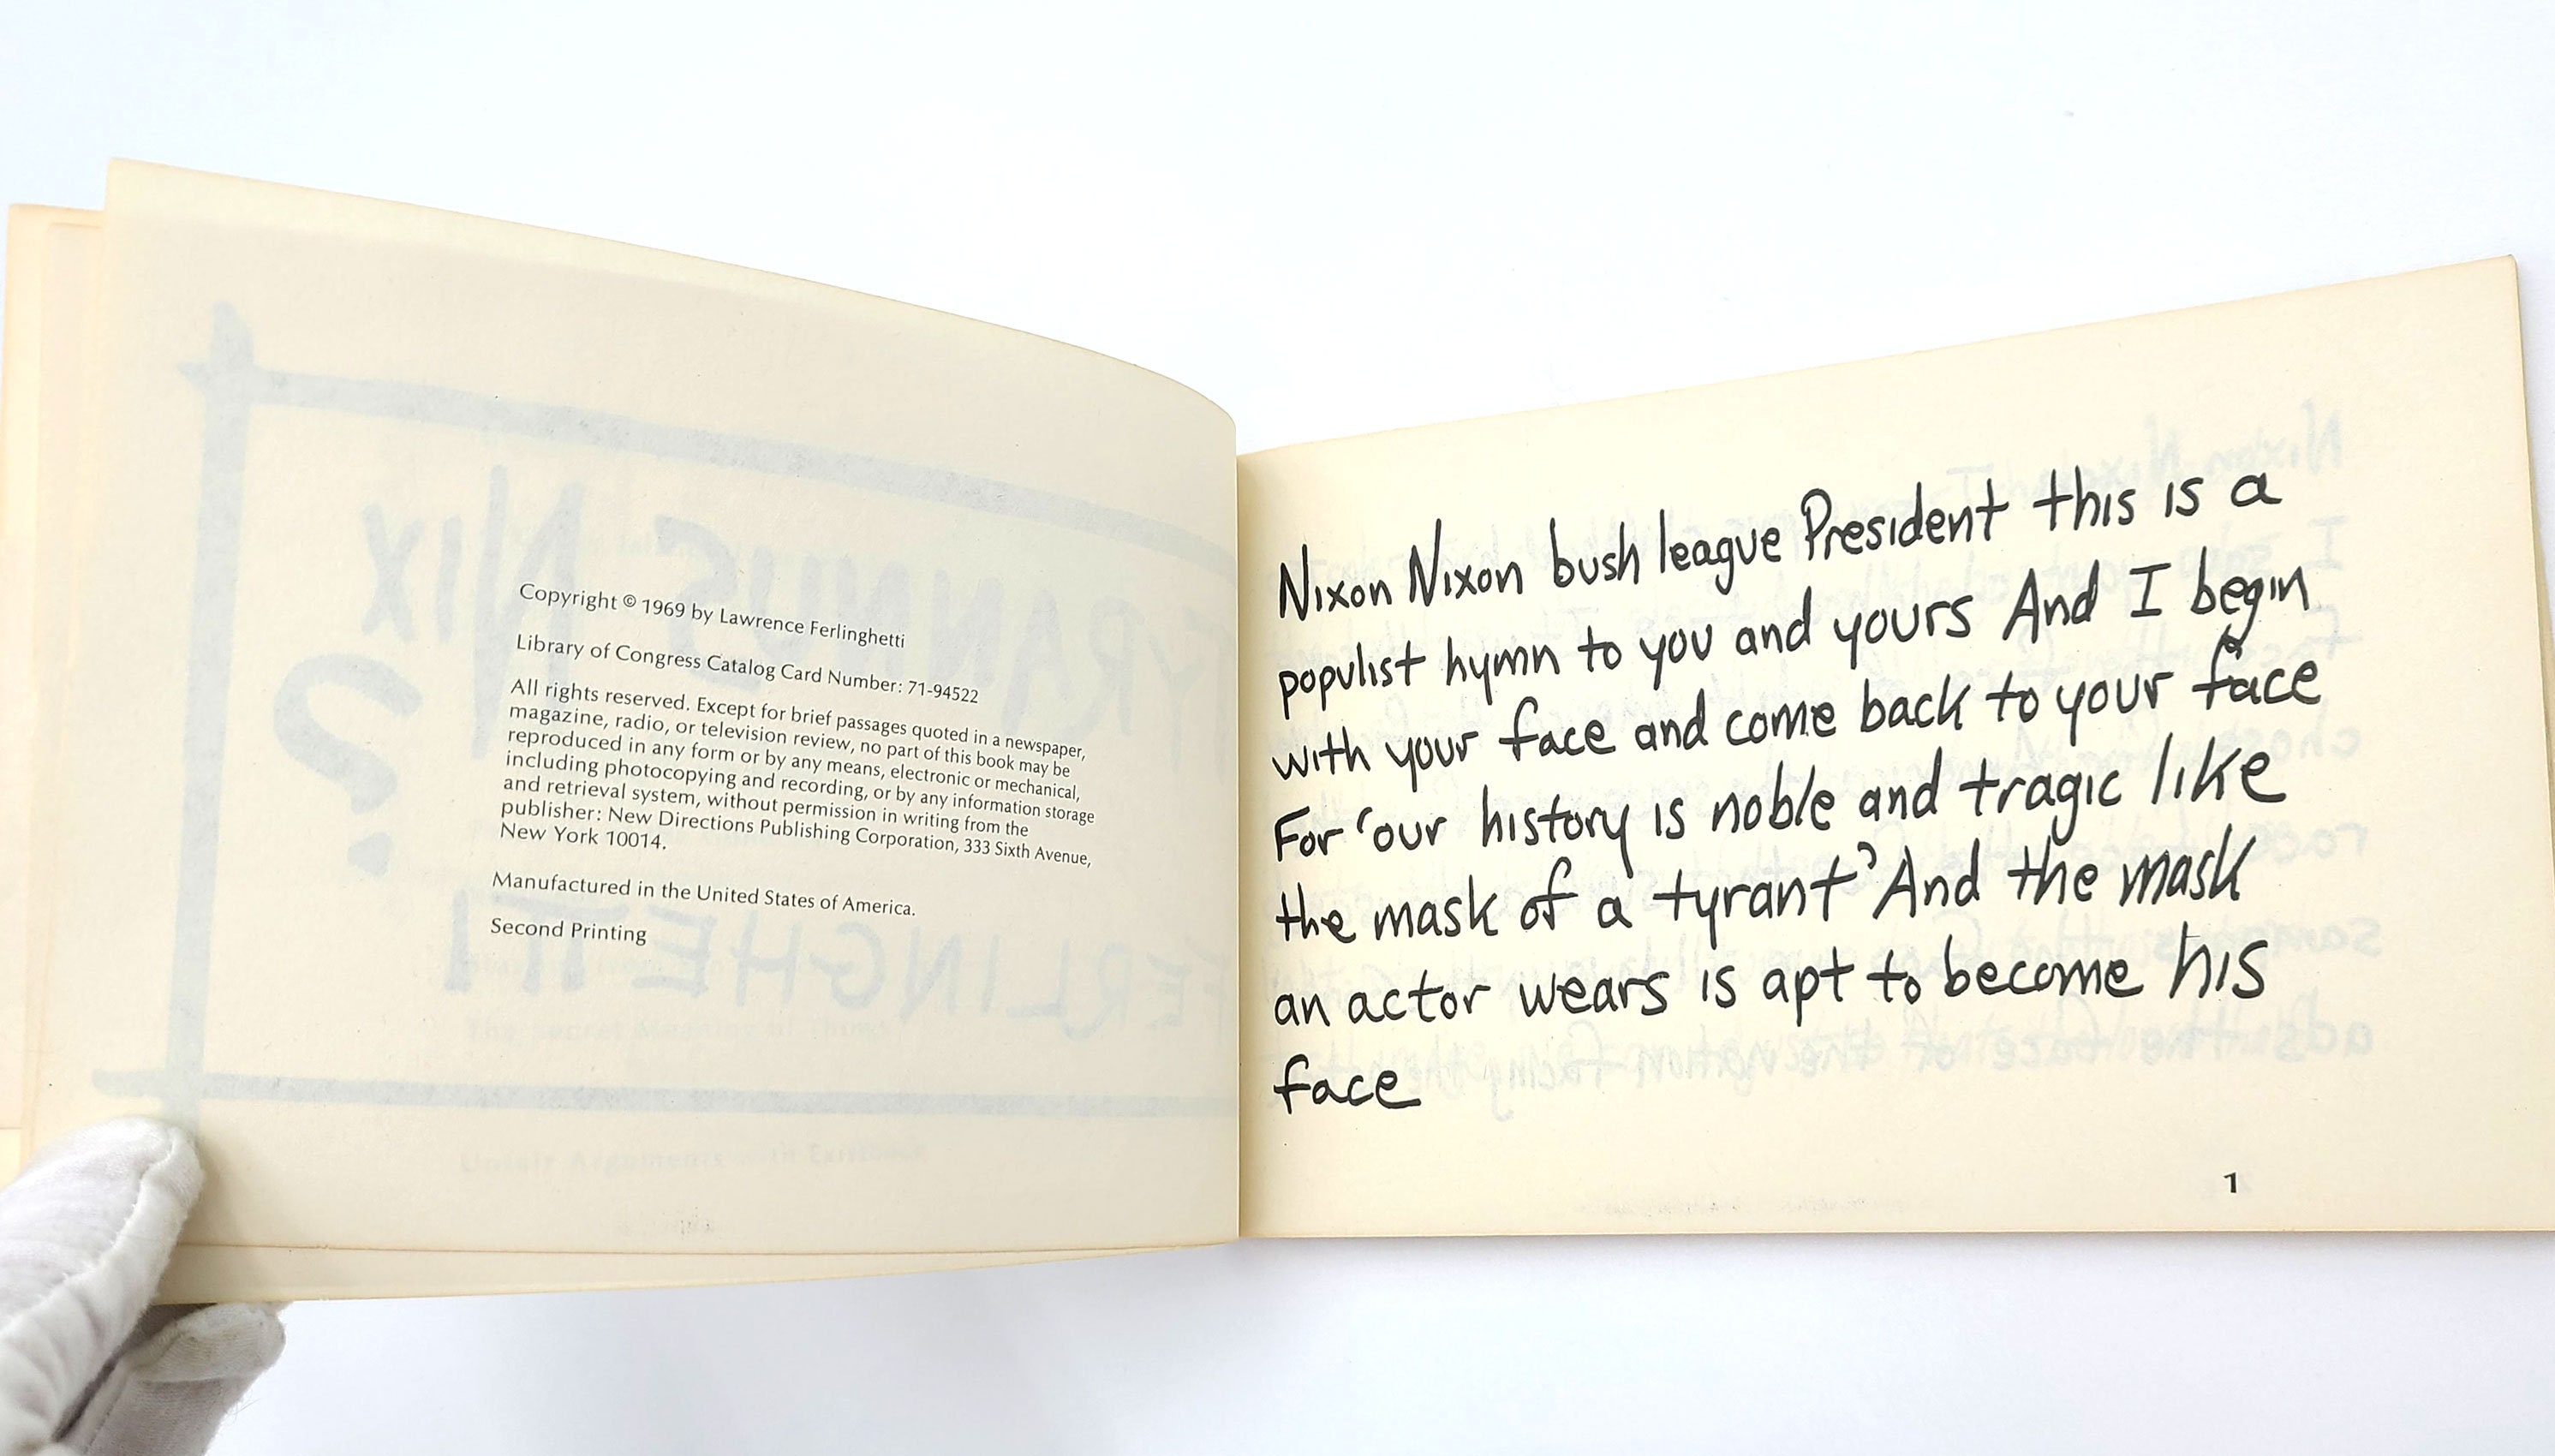 Copyright © 1969 by Lawrence Ferlinghetti
Library of Congress Catalog Card Number: 71-94522
All rights reserved. Except for brief passages quoted in a newspaper,
magazine, radio, or television review, no part of this book may be
reproduced in any form or by any means, electronic or mechanical,
including photocopying and recording, or by any information storage
and retrieval system, without permission in writing from the
publisher: New Directions Publishing Corporation, 333 Sixth Avenue,
New York 10014.
Manufactured in the United States of America.
Second Printing
Nixon Nixon bush league President this is a
populist hymn to you and yours And I begin
with your face and come back to your face
For 'our history is noble and tragic like
the mask of a tyrant' And the mask
an actor wears is apt to become his
face
1